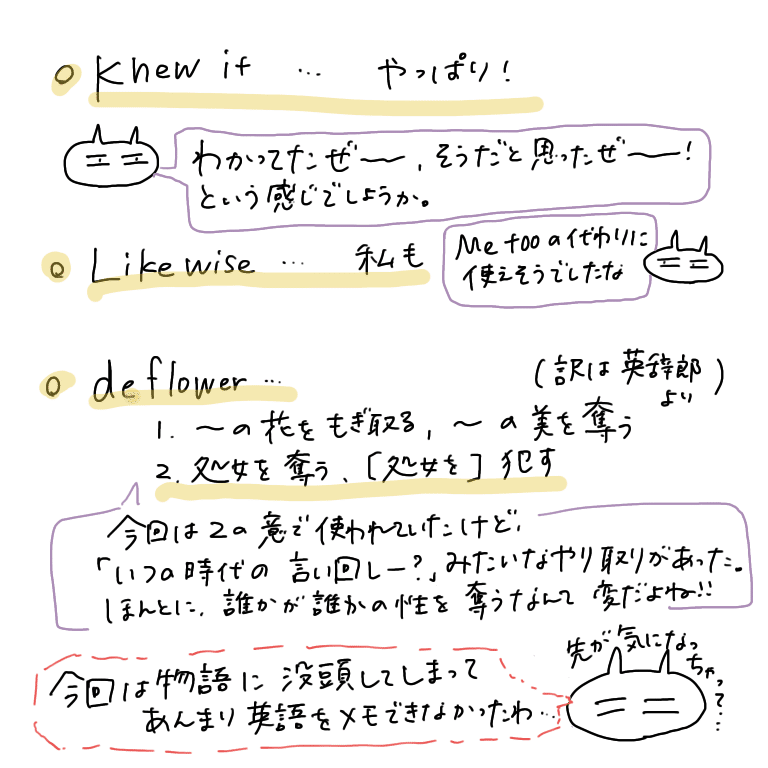 ○ Knew it … やっぱり!
わかってたぜ〜、そうだと思ったぜ〜!
という感じでしょうか。
○ Likewise … 私も
Me tooの代わりに
使えそうでしたな
○ deflower…
(訳は英辞郎より)
1. 〜の花をもぎ取る, 〜の美を奪う
2. 処女を奪う、[処女を]犯す
今回は2の意で使われていたけど、
「いつの時代の言い回しー?」みたいなやり取りがあった。
ほんとに、誰かが誰かの性を奪うなんて変だよね!!
今回は物語に没頭してしまって
あんまり英語をメモできなかったわ…
先が気になっちゃって…